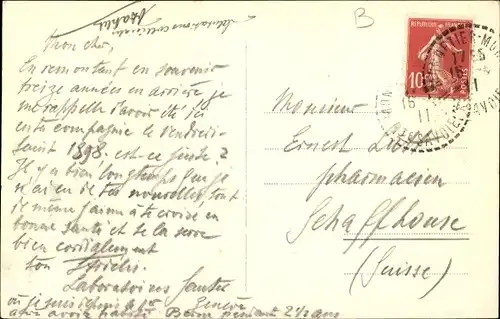 Salutations
B
Mon cher,
En remontant en souvenir
treize années en arrière je
me rappelle d'avoir été ici
en ta compagnie le vendredi-
saint 1898. est-ce juste ?
Il y a bien longtemps que je
n'ai eu de tes nouvelles, tout
de même j'aime à te croire en
bonne santé et je te serre
bien cordialement
ton
Laboratoires Sautter
où je suis depuis Genève
après avoir habité Berne pendant 2 1/2 ans
REPUBLIQUE FRANÇAISE
10
POSTES
Monsieur
Ernest
pharmacien
Schaffhouse
(Suisse)